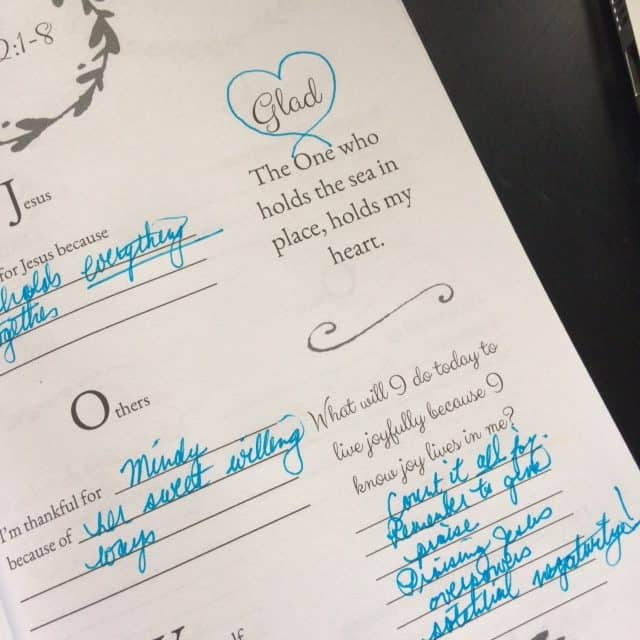 2:1-8
Jesus
for Jesus because
holds everything
together
Others
I'm thankful for Mindy
because of her sweet willing
ways
Glad
The One who
holds the sea in
place, holds my
heart.
What will I do today to
live joyfully because I
know joy lives in me?
Count it all joy.
Remember to give
praise
Praising Jesus
overpowers
potential